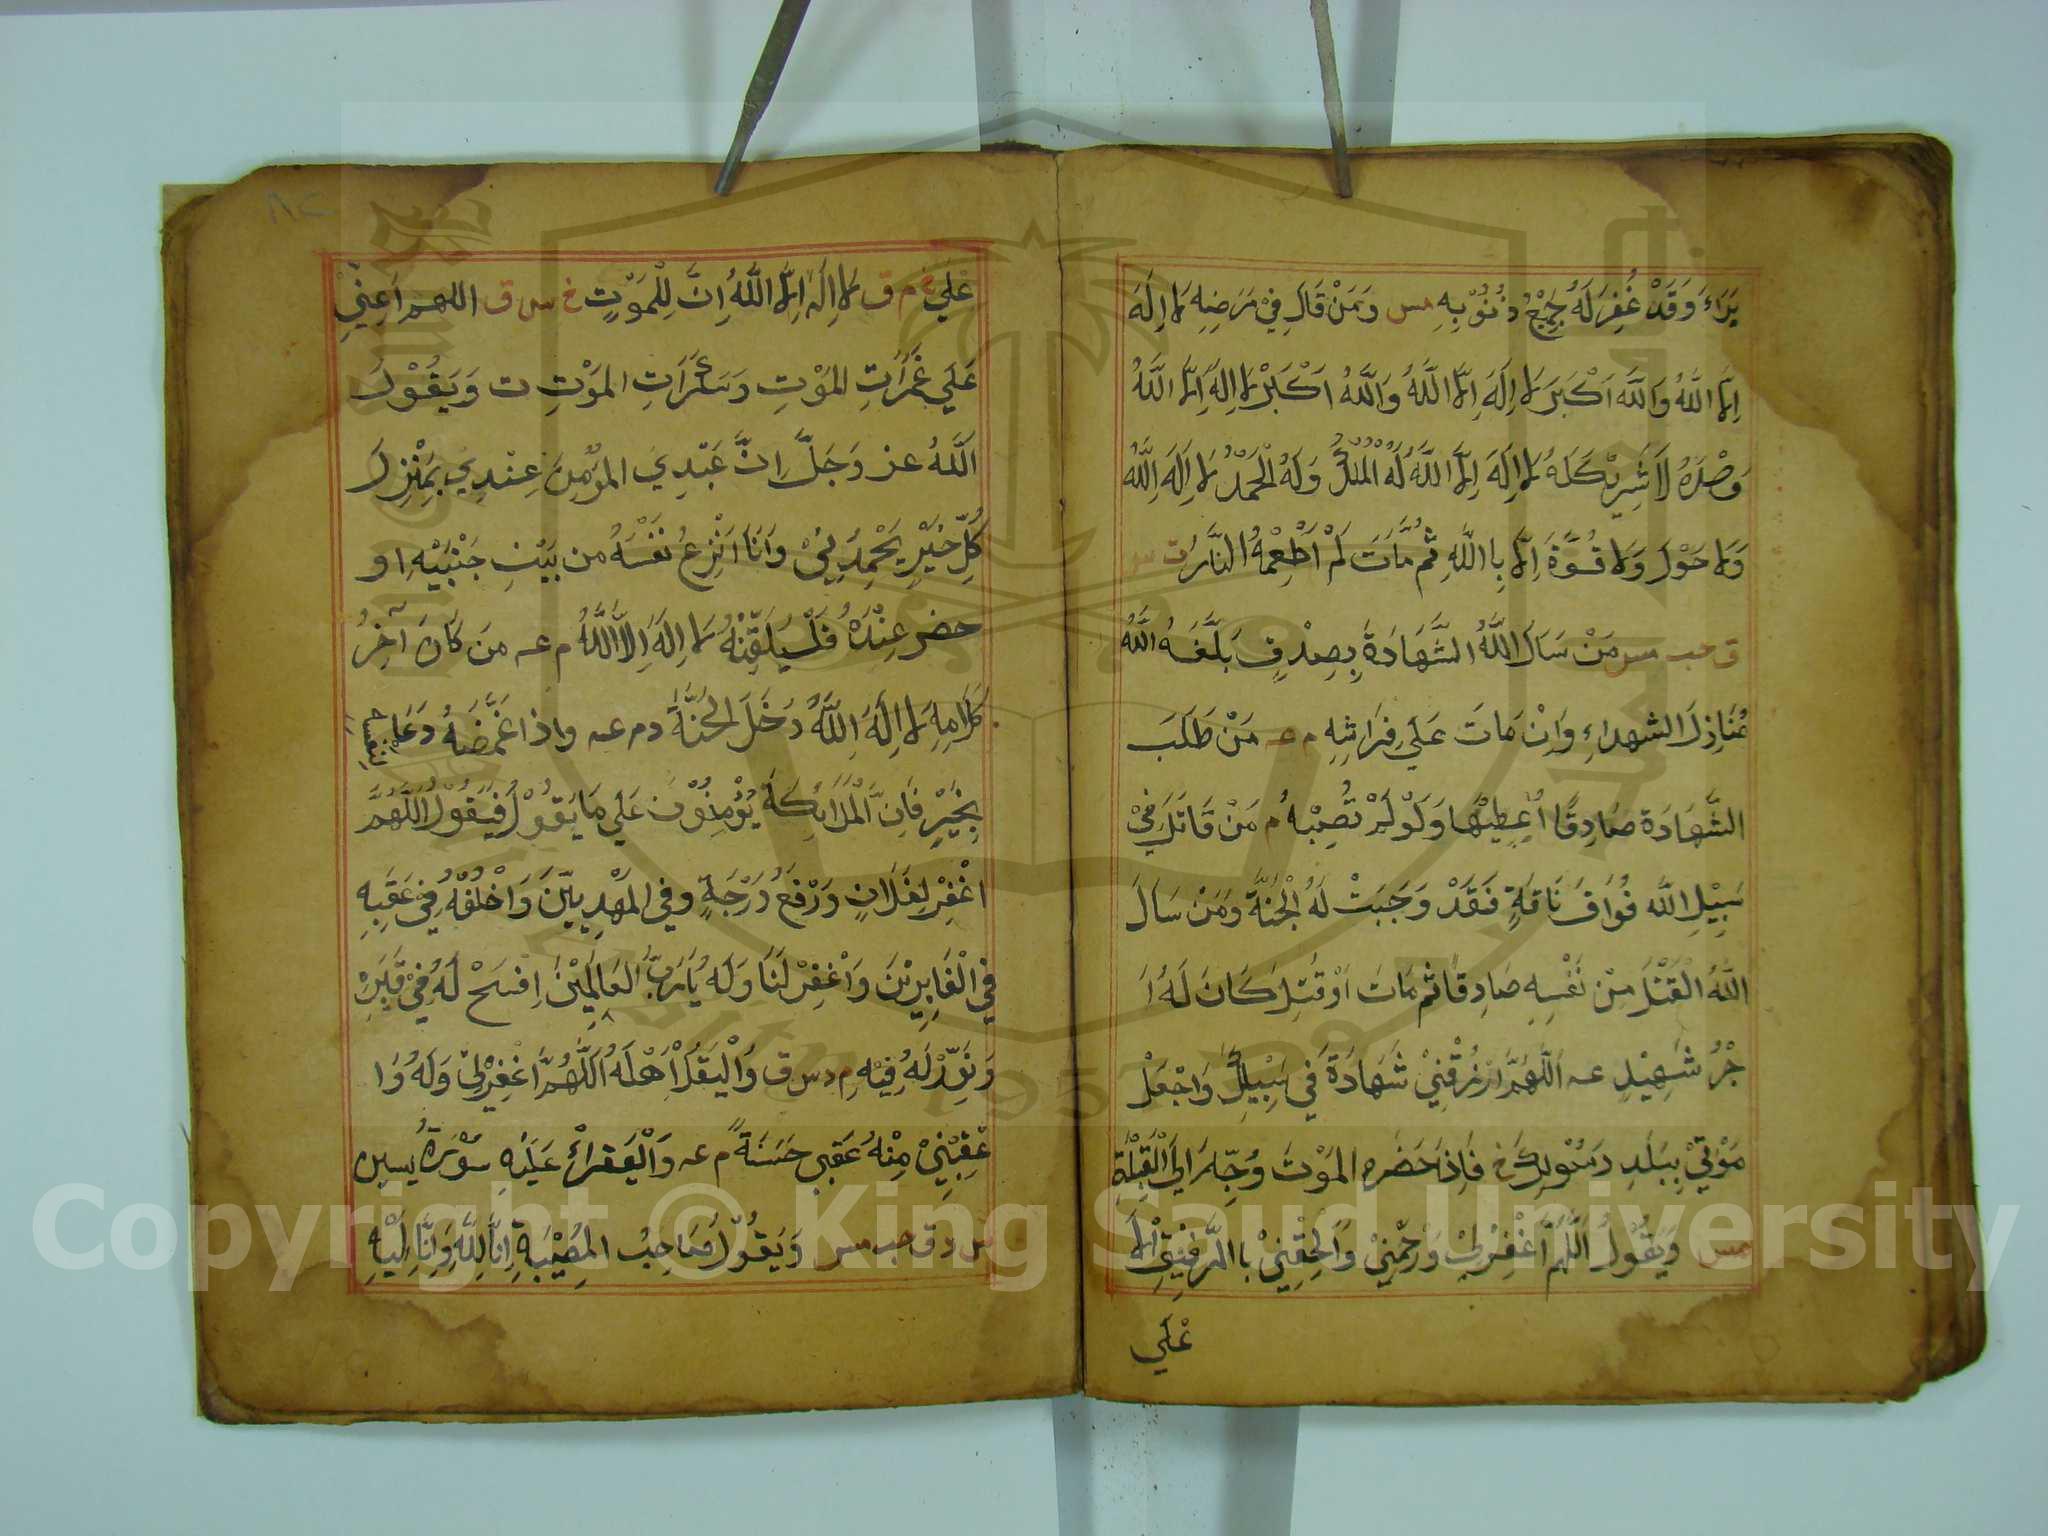 يَرَاءَ وَقَدْ غُفِرَ لَهُ جَمِيْعُ ذُنُوْبِهِ مس وَمَنْ قَالَ فِيْ مَرَضِهِ لَا اِلَهَ
اِلَّا اللَّهُ وَاللَّهُ اَكْبَرَ لَا اِلَهَ اِلَّا اللَّهُ وَاللَّهُ اَكْبَرْ لَا اِلَهَ اِلَّا اللَّهُ
وَحْدَهُ لَا شَرِيْكَ لَهُ لَا اِلَهَ اِلَّا اللَّهُ لَهُ الْمُلْكُ وَلَهُ الْحَمْدُ لَا اِلَهَ اِلَّا اللَّهُ
وَلَا حَوْلَ وَلَا قُوَّةَ اِلَّا بِاللَّهِ ثُمَّ مَاتَ لَمْ اَطْعِمْهُ النَّارُ ت س
ق حب مس مَنْ سَاَلَ اللَّهُ الشَّهَادَةَ بِصِدْقٍ بَلَّغَهُ اللَّهُ
مَنَازِلَ الشهداءِ وَاِنْ مَاتَ عَلَي فِرَاشِهِ م عه مَنْ طَلَبَ
الشَّهَادَة صَادِقًا اُعْطِيْهَا وَلَوْ لَمْ تُصِبْهُ م مَنْ قَاتَلَ فِيْ
سَبِيْلِ اللَّه فُوَاقَ نَاقَةٍ فَقَدْ وَجَبَتْ لَهُ الْجَنَّةُ وَمَنْ سَاَلَ
اللَّهُ الْقَتْلَ مِنْ نَفْسِهِ صَادِقًا ثُمَّ مَاتَ اَوْ قُتِلَ كَانَ لَهُ اَ
جْرُ شَهِيْدٍ عه اَللَّهُمَّ ارْزُقْنِيْ شَهَادَةً فِي سَبِيْلِكَ وَاجْعَلْ
مَوْتِيْ بِبَلَدِ رَسُوْلِكَ خ فَاِذَا حَضَرَهُ الْمَوْتَ وُجِّهَ اِلَي الْقِبْلَةِ
مس وَيَقُوْلُ اَللَّهُمَّ اغْفِرْلِيْ وَرْحَمْنِيْ وَاَلْحِقْنِيْ بِالرَّفِيْقِ الا
عْلَي
٨٢
عْلَي خ م ق لَا اِلَهَ اِلَّا اللَّهُ اِنَّ لِلْمَوْتٍ خ س ق اللهم اَعِنِّيْ
عَلَي غَمَرَاتِ الْمَوْتِ وَسَكَرَاتِ الْمَوْتِ ت وَيَقُوْلَ
اَللَّهُ عز وَجَلَّ اِنَّ عَبْدِيَ الْمُؤْمِنَ عِنْدِيْ بِمَنْزِلَ
كُلِّ خَيْرٍ يَحْمِدُنِيْ وَاَنَا اَنْزِعُ نَفْسَهُ من بَيْنِ جَنْبَيْهِ او
حضر عِنْدَهُ فَلْيُلَقِّنْهُ لَا اِلَهَ اِلَّا اللَّهُ م عه مَن كَانَ آخِرُ
كَلَامِهِ لَا اِلَهَ اِلَّا اللَّهُ دَخَلَ الْجَنَّةَ د م عه واذا غَمَّضَهُ دَعَا
بِخَيْرٍ فَاِنَّ الْمَلَائِكَةَ يُؤْمِنُوْنَ عَلَي مَا يَقُوْلُ فَيَقُوْلُ اَللَّهُمَّ
اغْفِرْ لِفُلَانٍ وَرْفَعْ دَرَجَةٍ وفي الْمَهْدِيِيِّنَ وَاخْلُفْهُ فِيْ عَقَبِهِ
فِي الْغَابِرِيْنَ وَاغْفِرْ لَنَا وَلَهُ يَا رَبَّ الْعَالَمِيْنَ اِفْسَحْ لَهُ فِيْ قَبْرِهِ
وَنَوِّرْ لَهُ فِيْهِ م د س ق وَالْيَقُلْ اَهْلَهُ اَللَّهُمَّ اغْفِرْلِيْ وَلَهُ وَا
عْقِبْنِيْ مِنْهُ عَقِبيَ حَسَنَةً م عه وَالْيَقْرَأْ عَلَيْهِ سُوْرَةُ يسين
س د ق حب مس وَيَقُوْلُ صَاحِبُ الْمُصِيْبَةِ اِنَّا لِلَّهِ وَاِنَّا اِلَيْهِ
Copyright © King Saud University